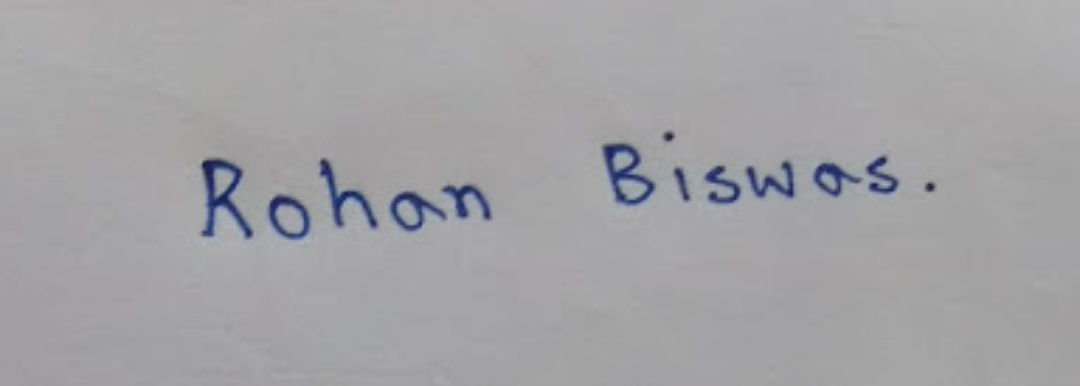 Rohan Biswas.